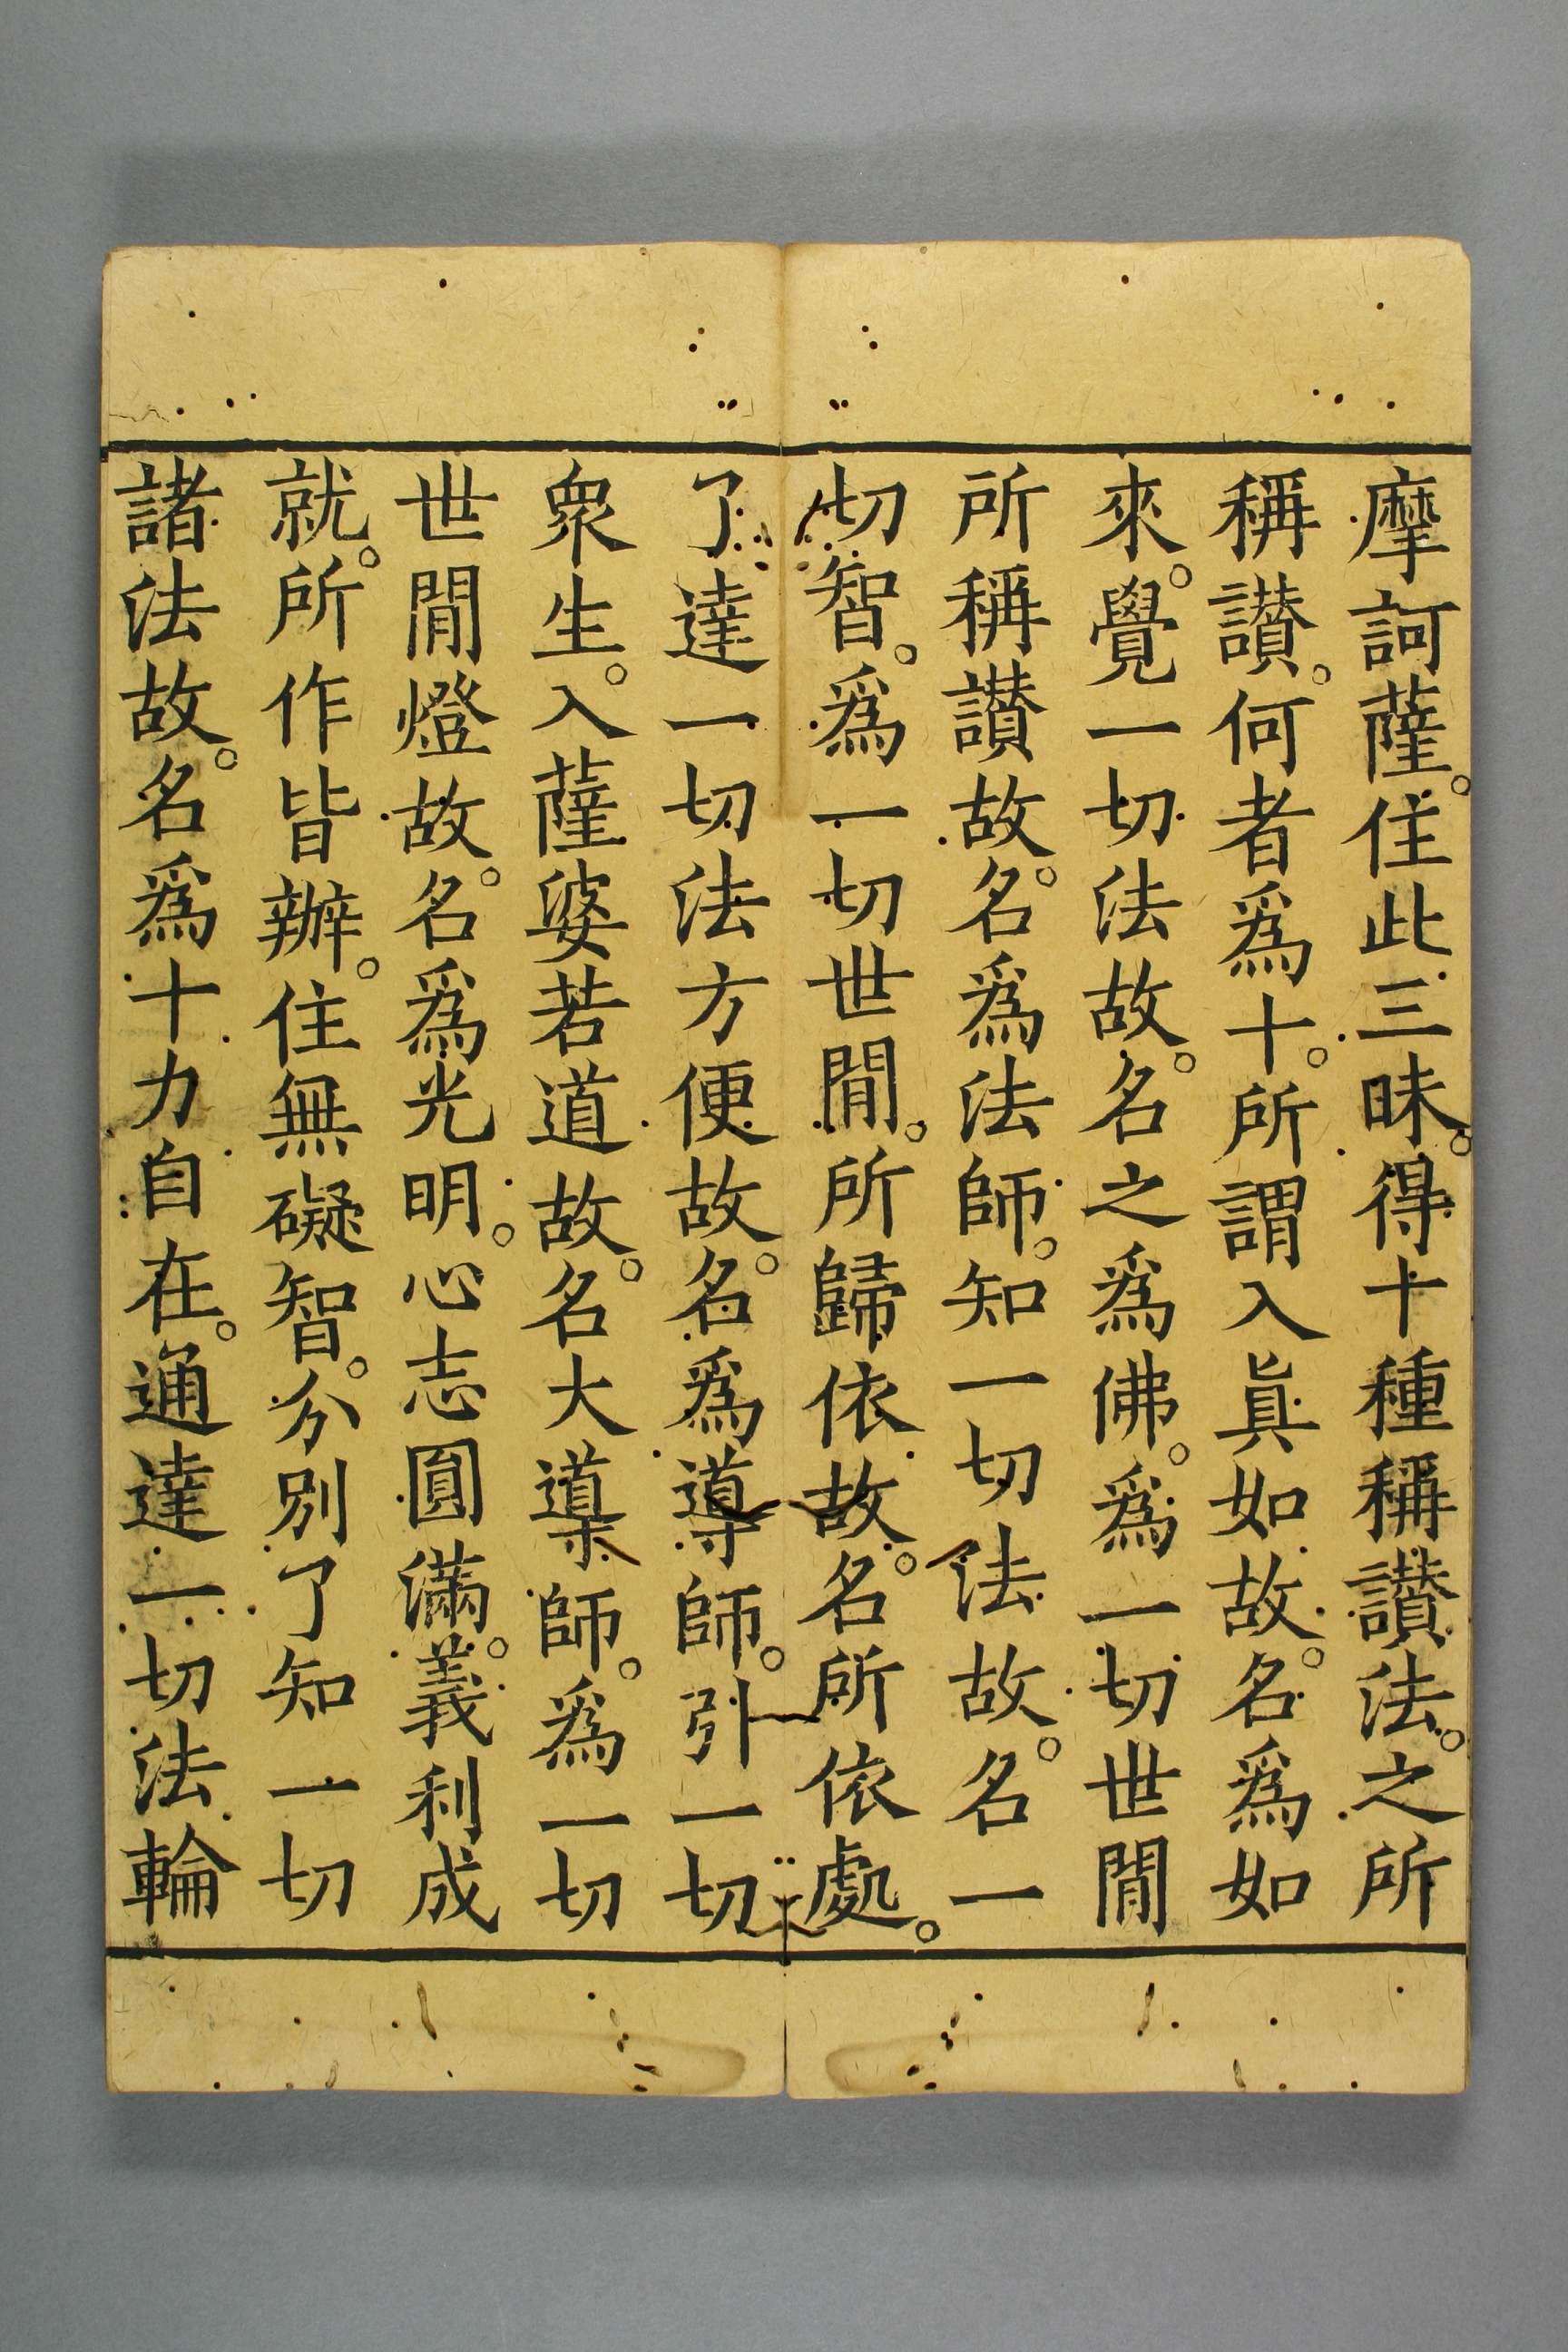 摩訶薩。住此三昧。得十種稱讃法。之所
稱讃。何者爲十。所謂入眞如故。名爲如
來。覺一切法故。名之爲佛。爲一切世閒
所稱讃故。名爲法師。知一切法故。名一
切智。爲一切世閒。所歸依故。名所依處。
了達一切法方便故。名爲導師。引一切
衆生。入薩婆若道故。名大導師。爲一切
世閒燈故。名爲光明。心志圓滿。義利成
就。所作皆辦。住無礙智。分別了知一切
諸法故。名爲十力自在。通達一切法輪